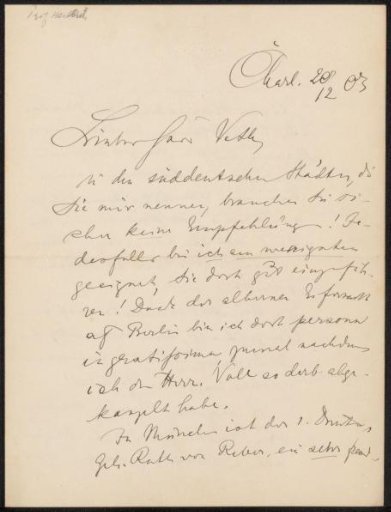 Charl. 20/12 03
Lieber Herr Veth,
In den süddeutschen Städten, die
Sie mir nennen, brauchen Sie si-
cher keine Empfehlungen! Je-
denfalls bin ich am wenigsten
geeignet, Sie dort gut einzufüh-
ren! Dank der albernen
Berlin bin ich dort persona
ingratissima zumal nachdem
ich den Herr. Voll so derb abge-
kanzelt habe.
In München ist der 1. Direktor,
Geh. Rath von Reber, ein